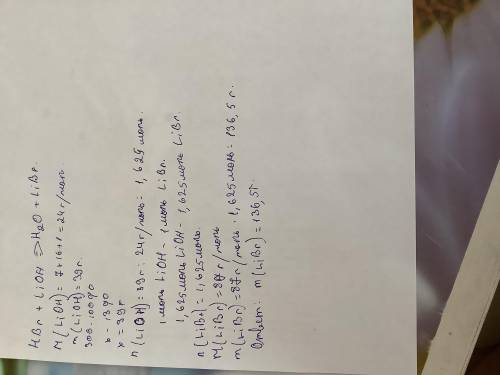 HBr + LiOH => H2O + LiBr.
M(LiOH) = 7+16+1 = 24г/моль.
m(LiOH) = 39г.
300 - 100%
x - 13%
x = 39г
n(LiOH) = 39г : 24г/моль = 1,625моль.
1моль LiOH - 1моль LiBr.
1,625моль LiOH - 1,625моль LiBr.
n(LiBr) = 1,625моль.
M(LiBr) = 87г/моль
m(LiBr) = 87г/моль · 1,625моль = 136,5г.
Ответ: m(LiBr) = 136,5г.